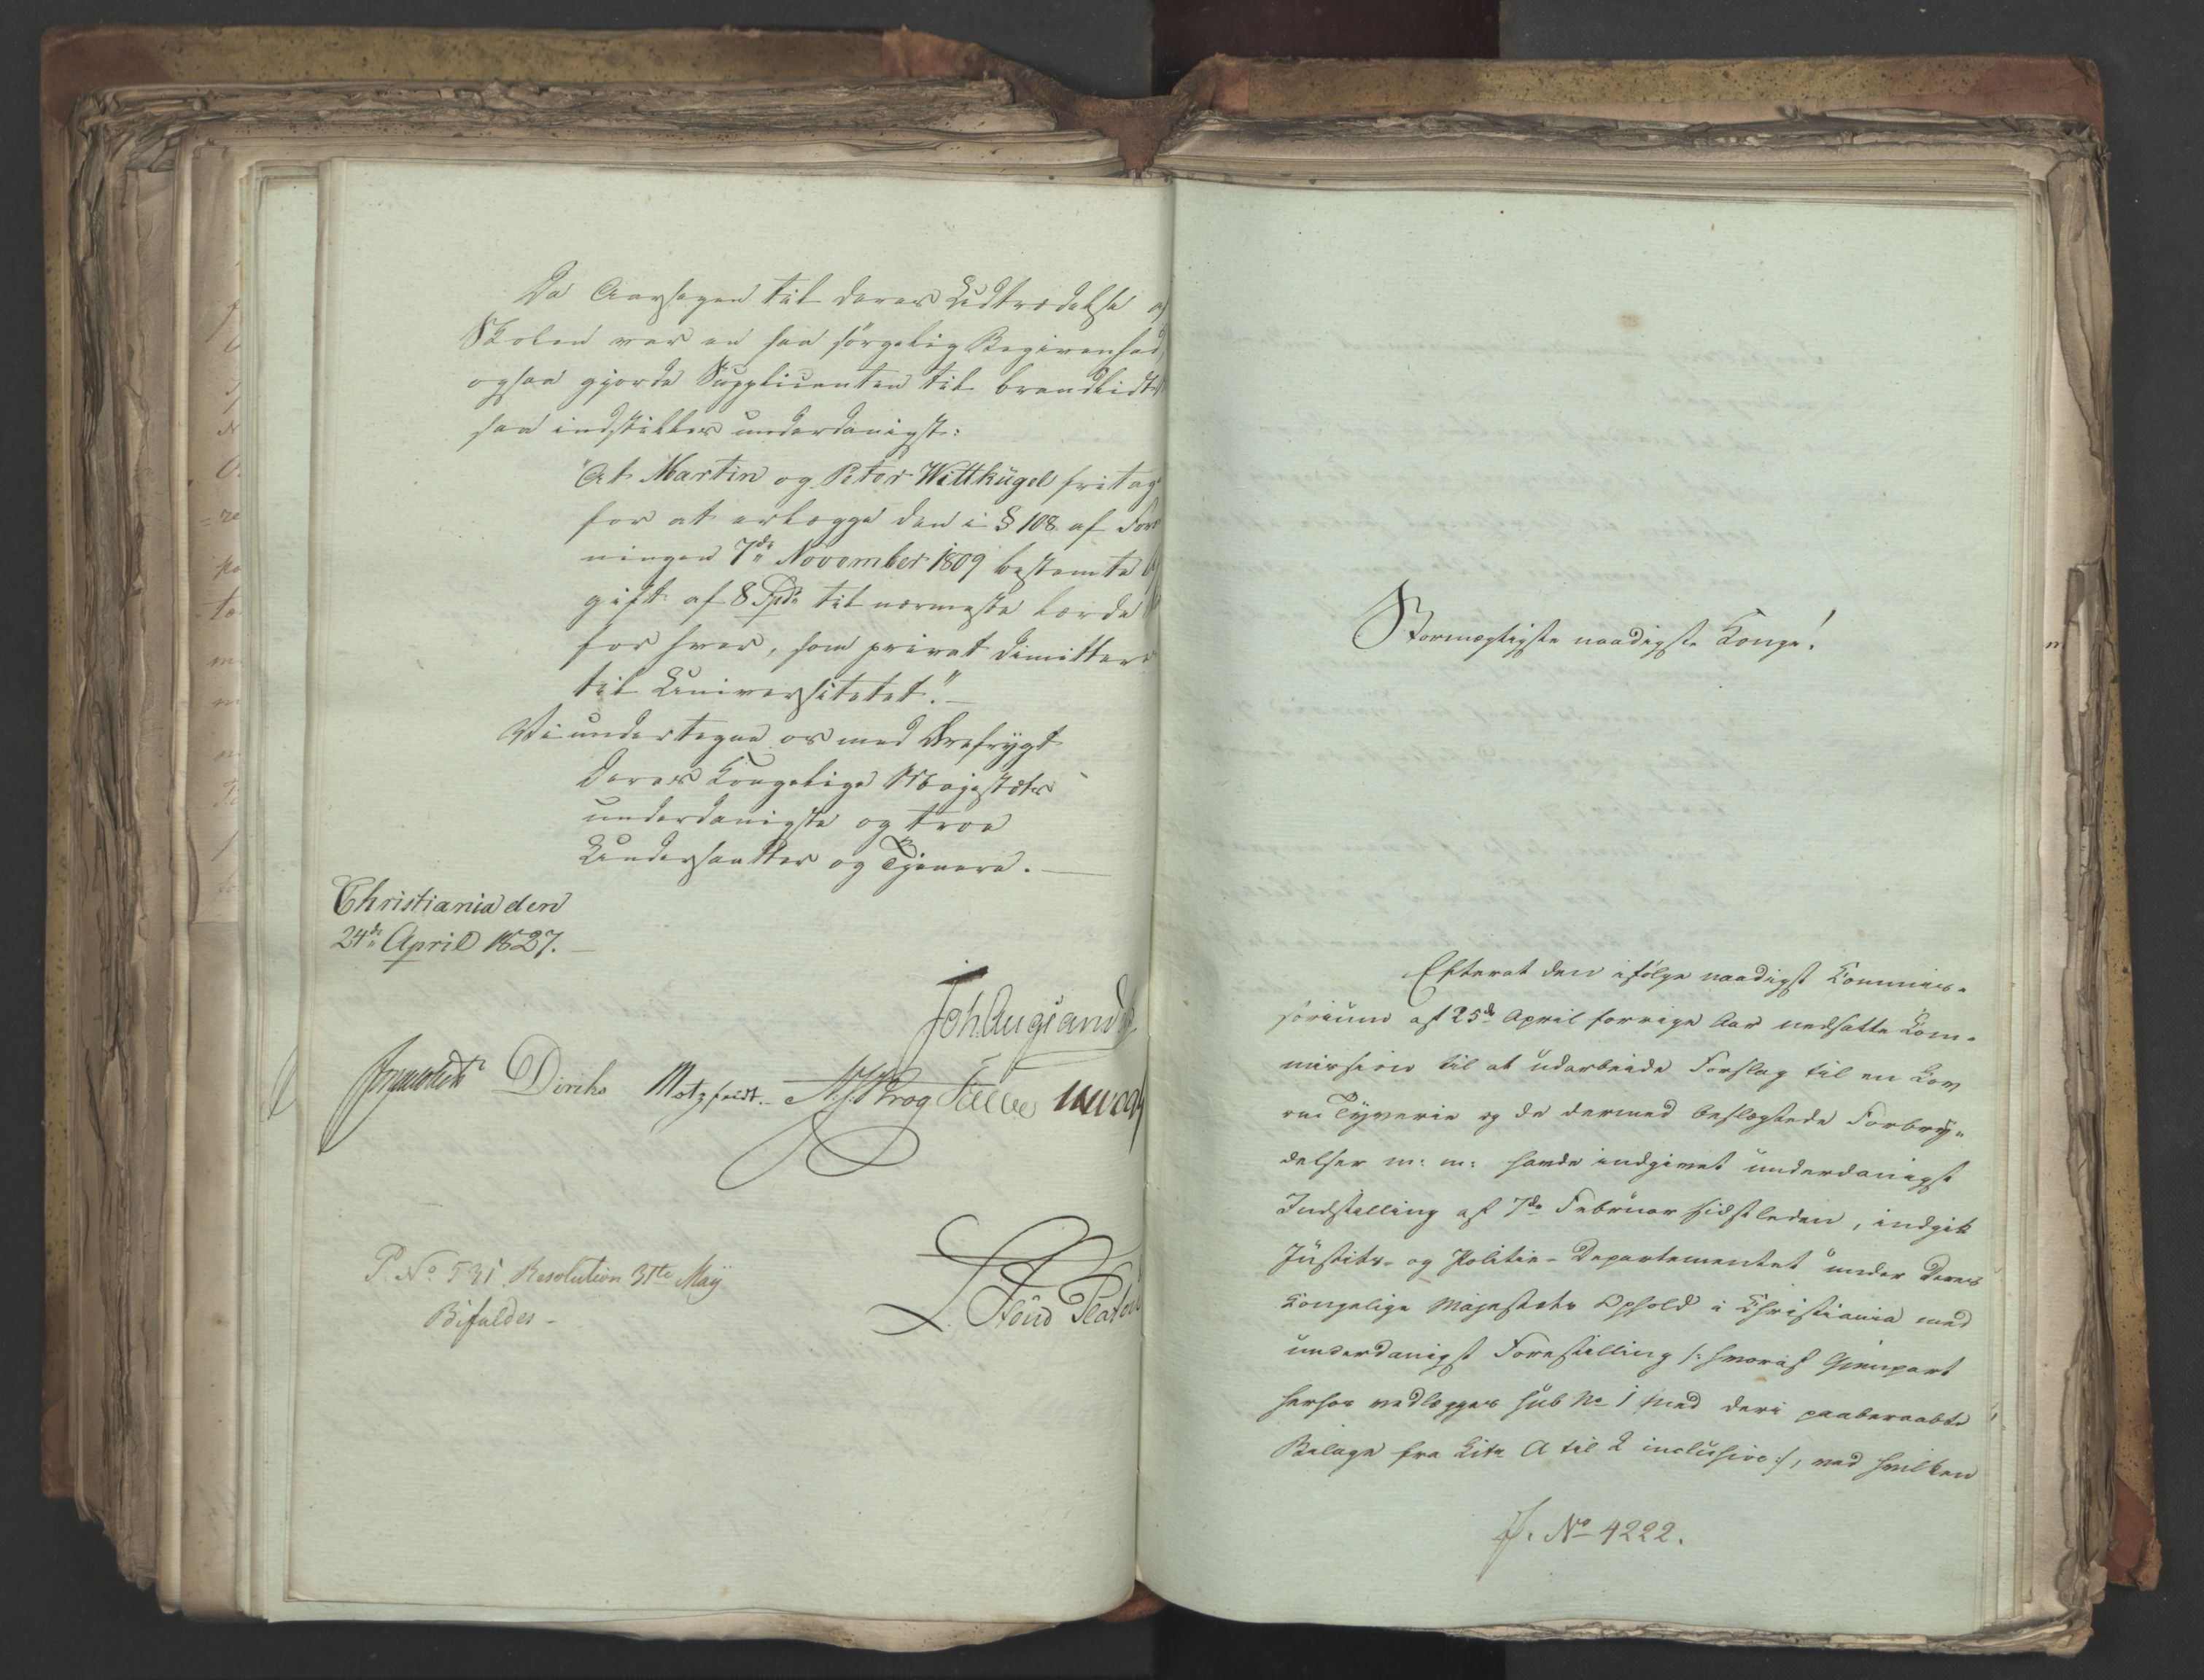 Da Aarsagen til deres Udtrædelse a
Skolen var en saa sørgelig Begivenhed,
ogsaa gjorde Supplicanten til brandlidt
saa indstilles underdanigst:
"At Martin og Peter Wittkügel fritag
for at erlægge den i § 108 af For
ningen 7de November 1809 bestemte
gift af 8 Spd. til nærmeste lærde
for hver, som privat dimitteres
til Universitetet."
Vi undertegne os med Ærefrygt
Deres Kongelige Majestæts
underdanigste og troe
Undersaatter og Tjenere.
Christiania den
24de April 1827.
Joh. Aug. Sand
Diriks Motzfeldt. Krog
P. No 531. Resolution 31te Maÿ
Bifaldes -
Stormægtigste naadigste Konge!
Efterat den ifølge naadigst Kommis-
sorium af 25de April forrige Aar nedsatte Kom-
mission til at udarbeide Forslag til en Lov
om Tyverie og de dermed beslægtede Forbry-
delser m: m: havde indgivet underdanigst
Indstilling af 7de Februar sidstleden, indgik
Justits- og Politie-Departementet under Deres
Kongelige Majestæts Ophold i Christiania med
underdanigst Forestilling /: hvoraf Gienpart
herhos vedlægges sub No 1 med deri paaberaabte
Bilage fra Litr A til Q inclusive :/, ved hvilken
J. No 4222.